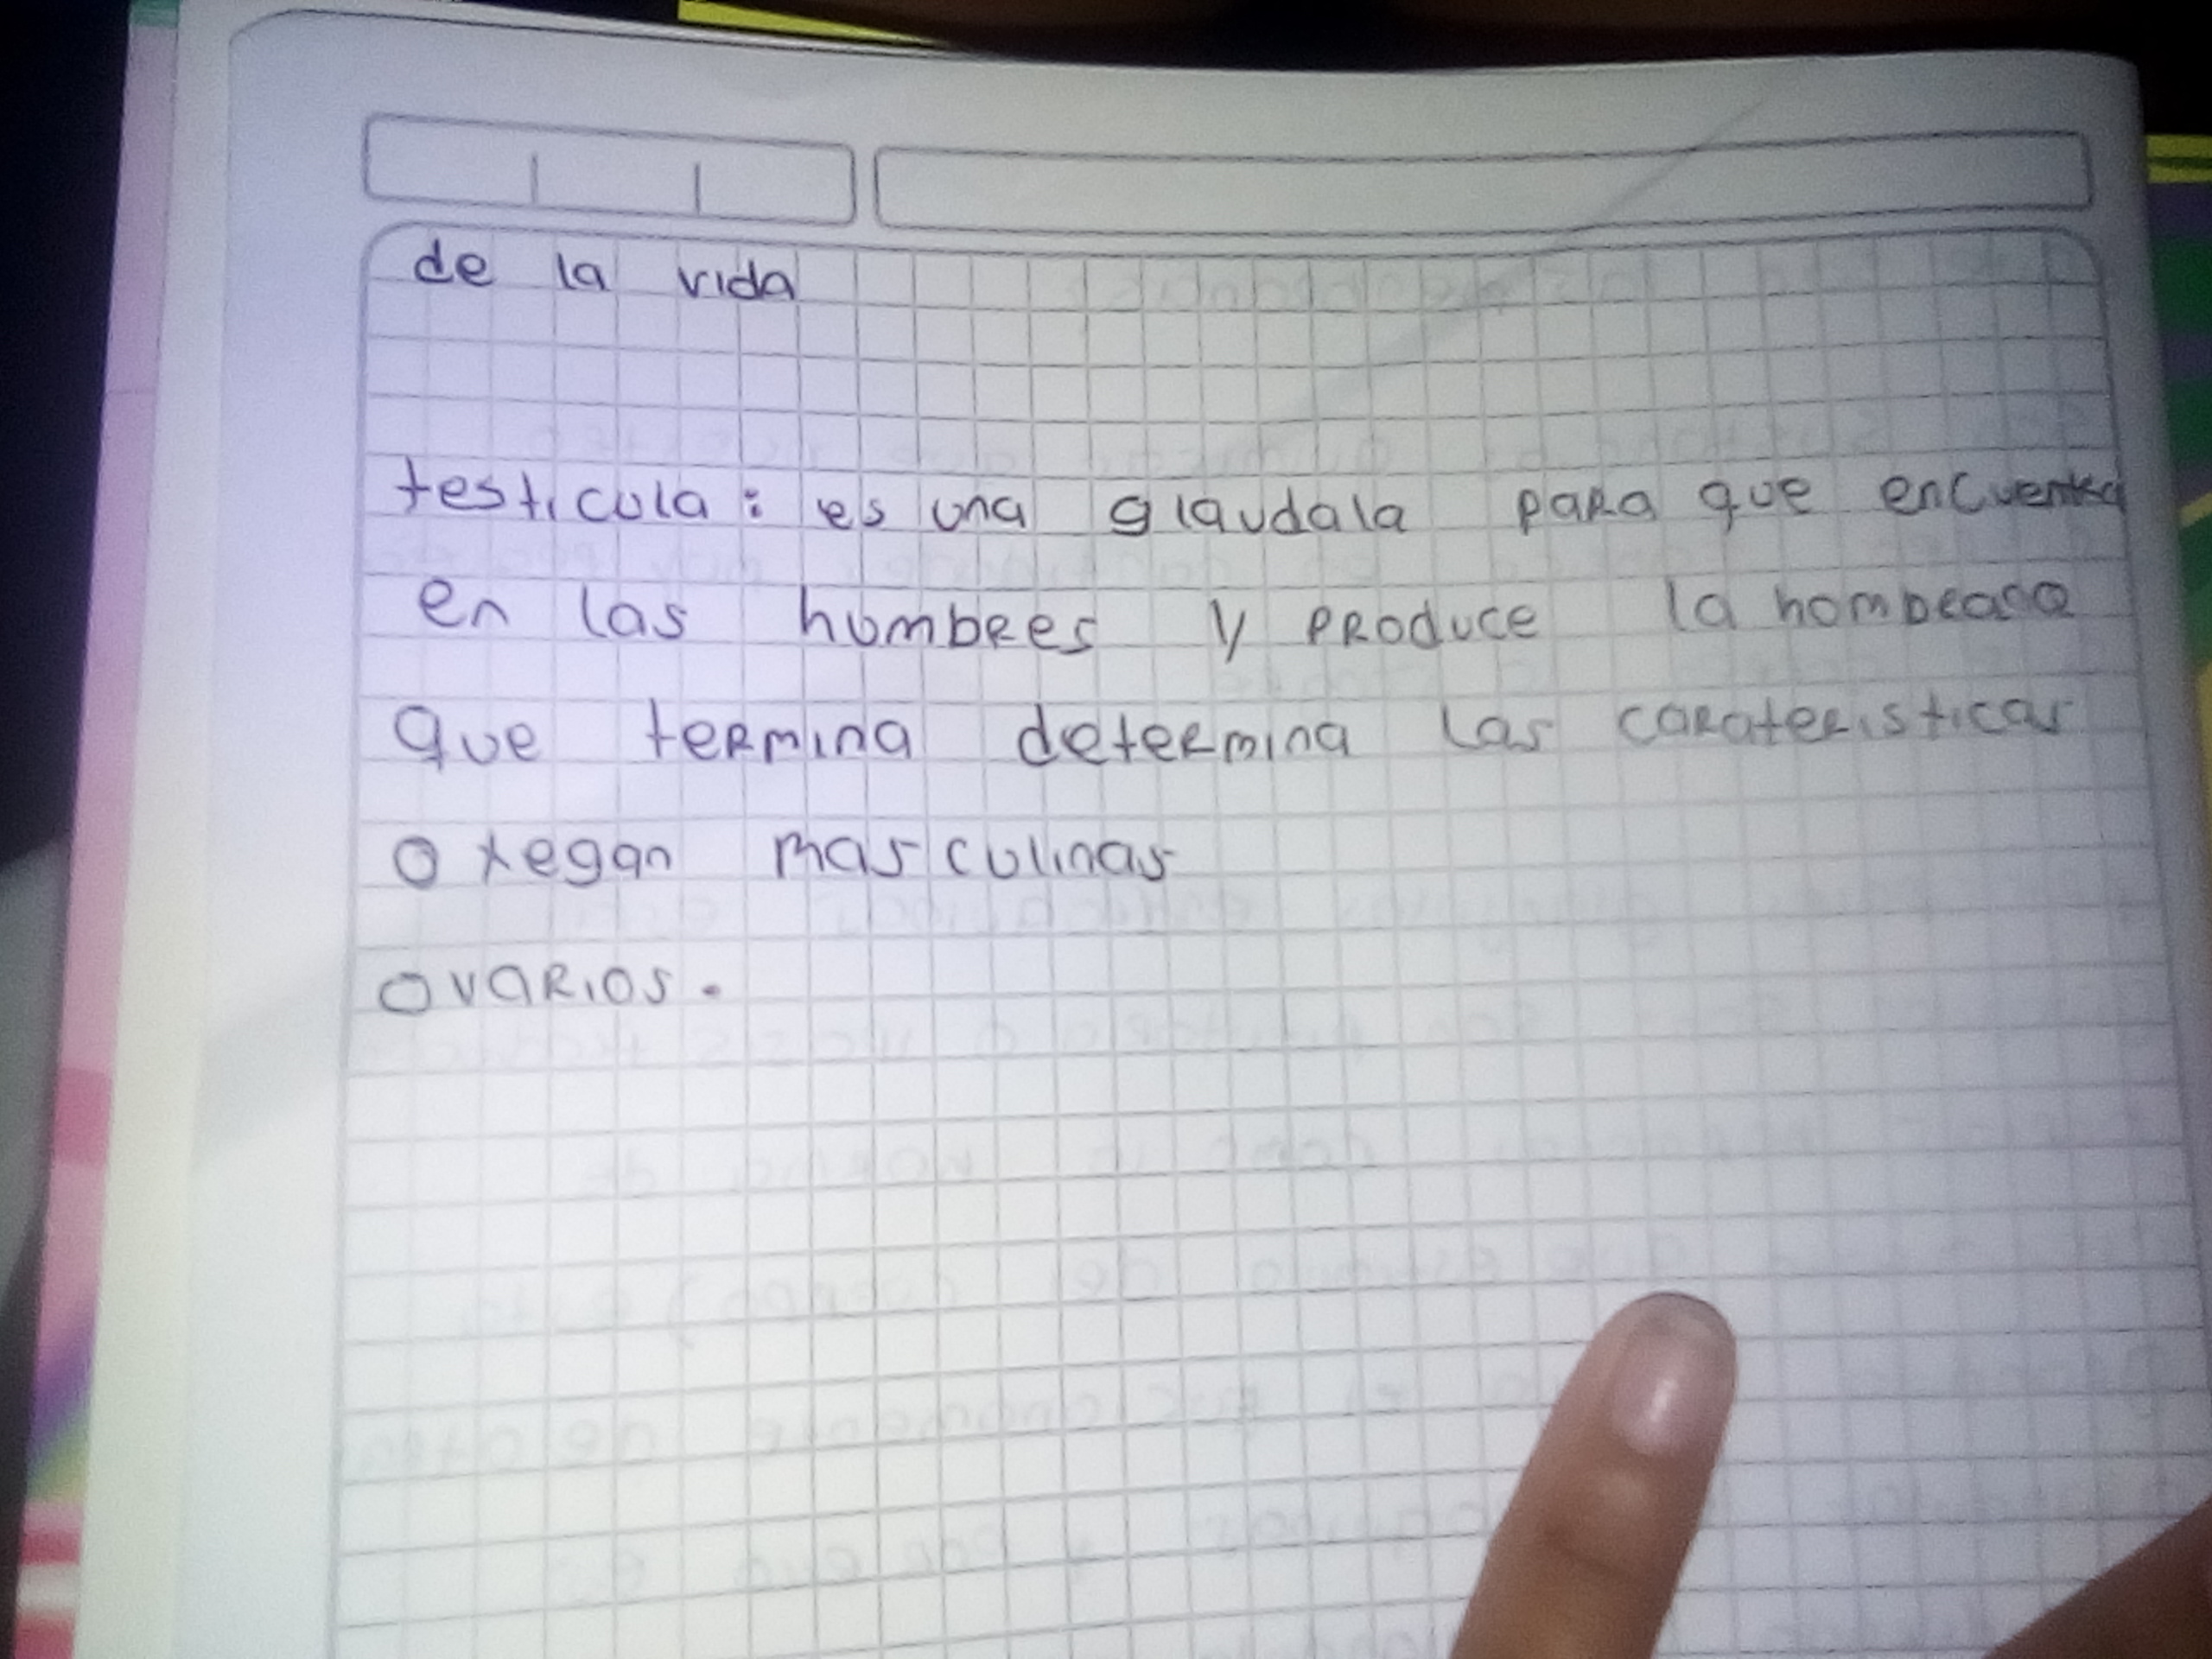 de la vida
testicula: es una glaudala para que encuentra
en las humbres y produce la hombeaca
que termina determina las carateristicas
o xegan masculinas
ovarios.